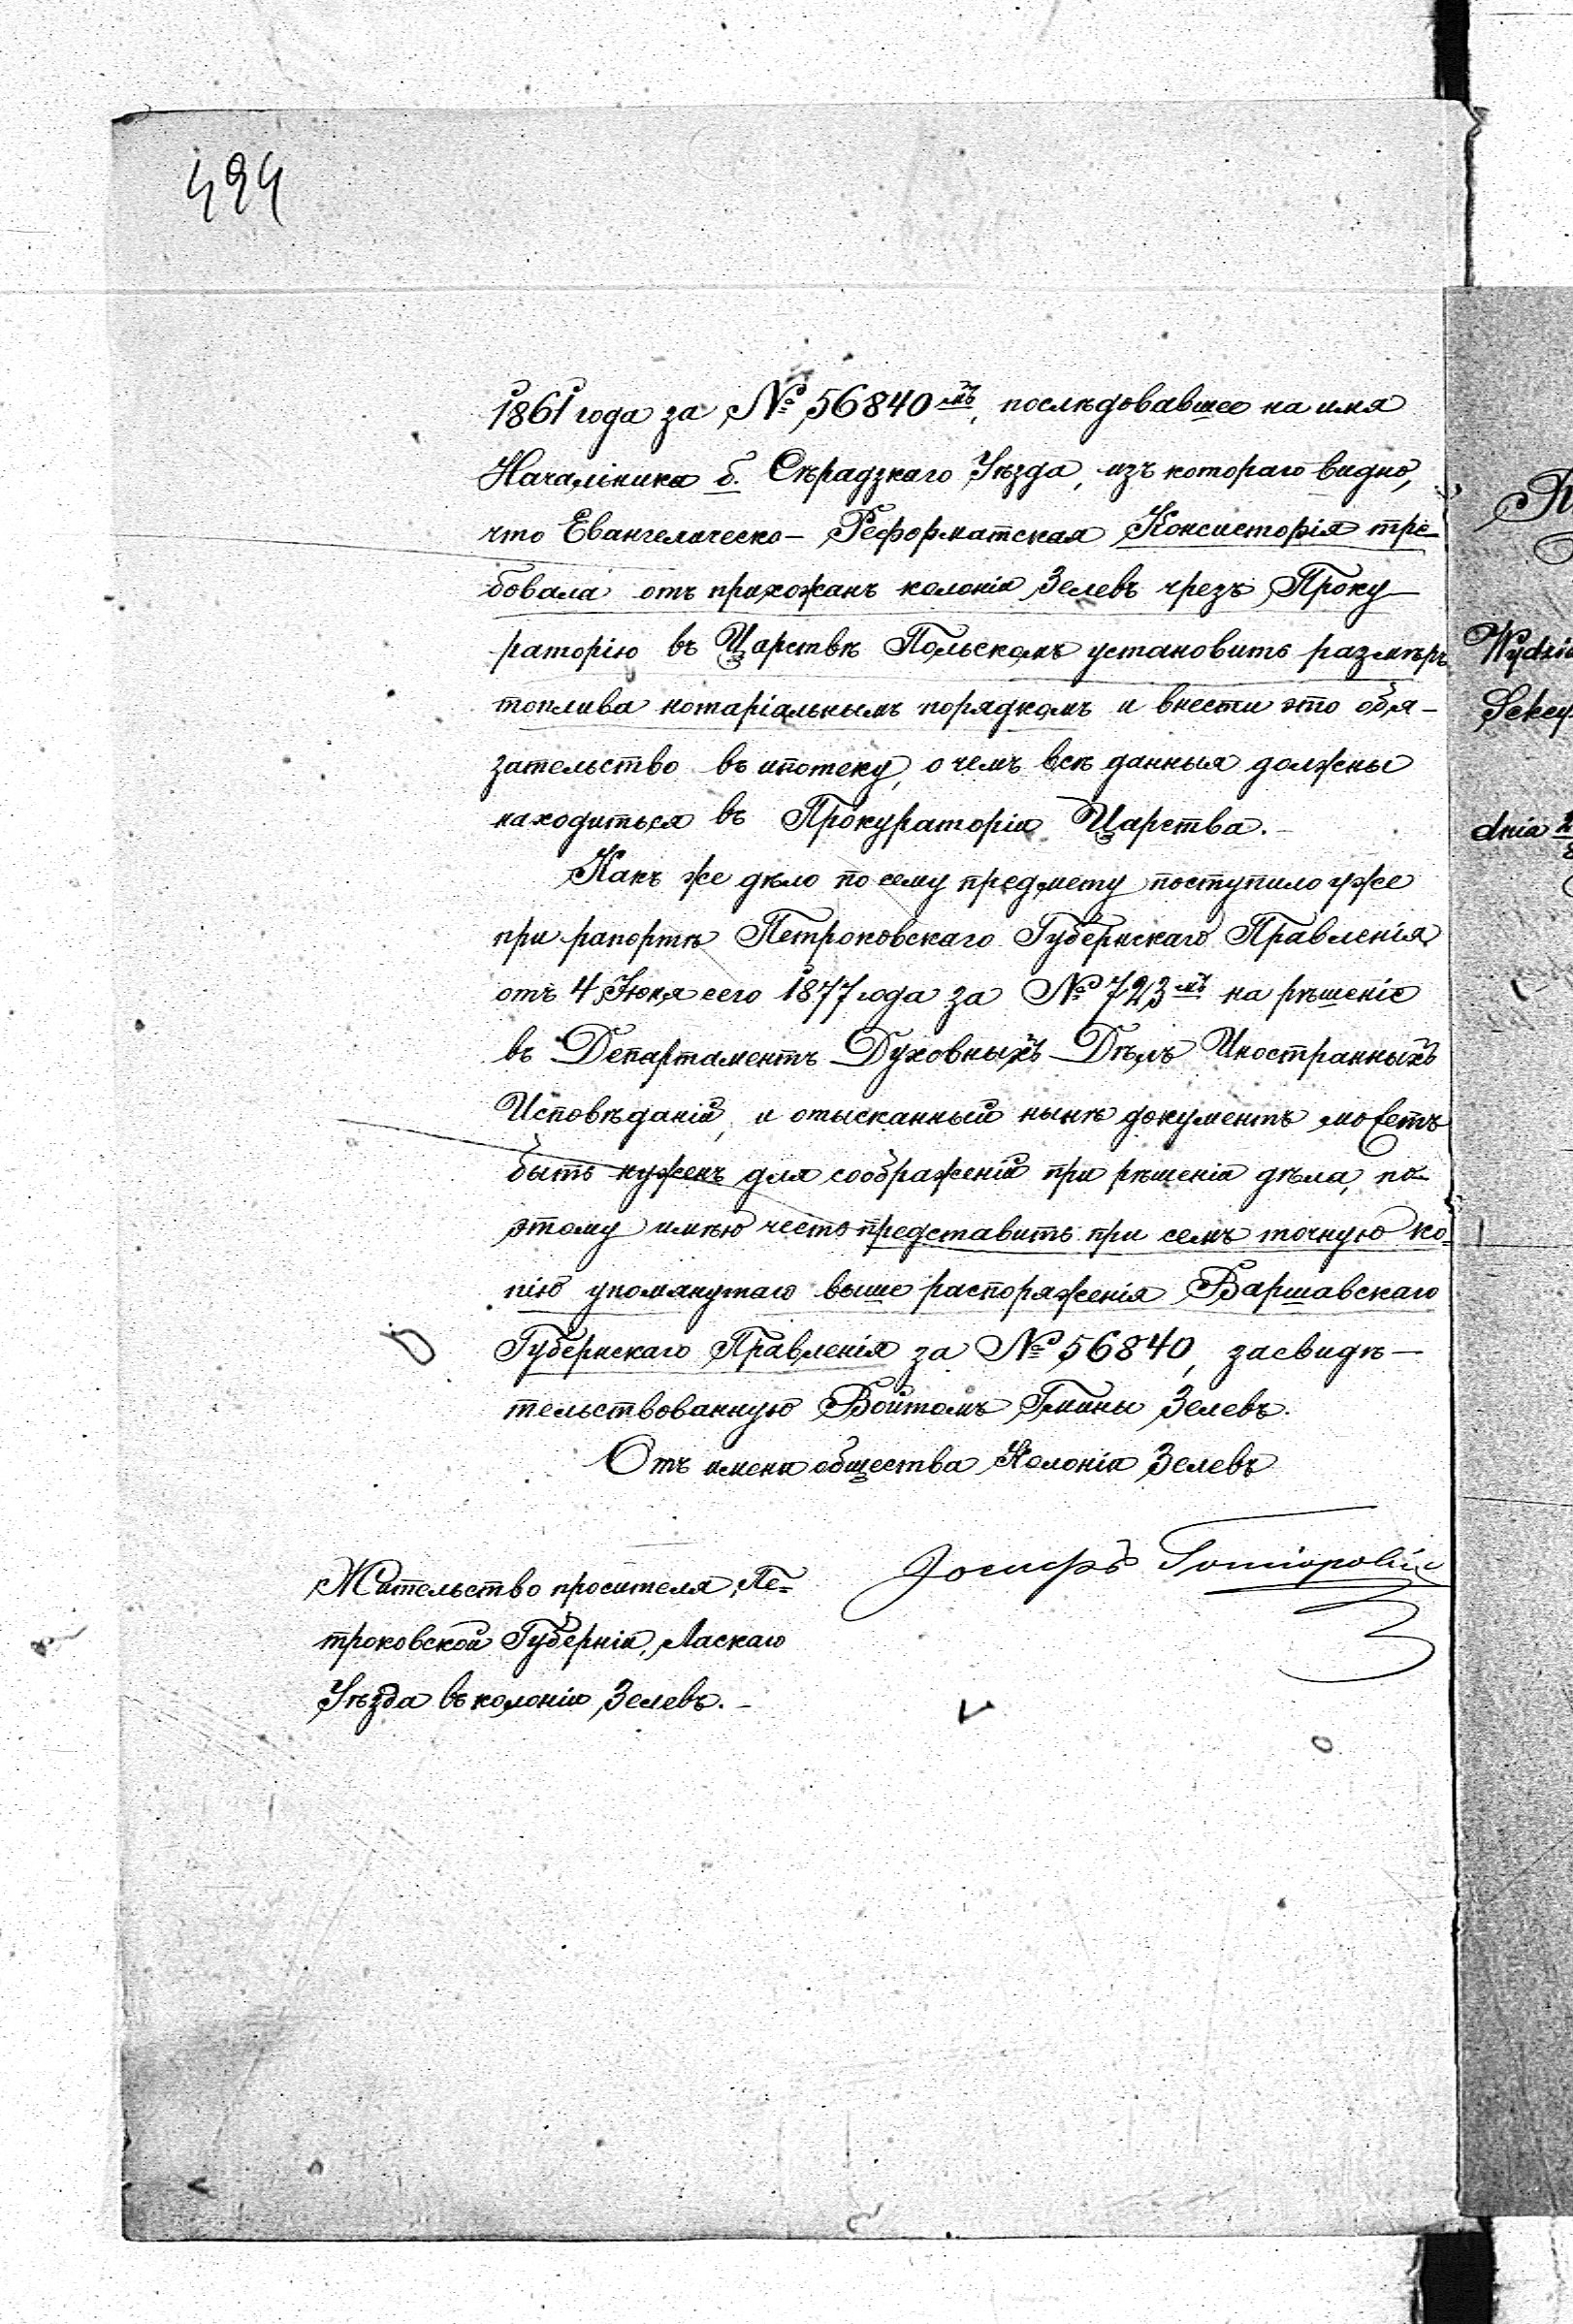 494
1861 года за № 56840мъ, послѣдовавшее на имя
Начальника б. Сѣрадзкаго Уѣзда, изъ котораго видно,
что Евангелическо-Реформатская Консисторія тре-
бовала отъ прихожанъ колоніи Зелевъ чрезъ Проку-
раторію въ Царствѣ Польскомъ установить размѣръ
топлива нотаріальнымъ порядкомъ и внести это обя-
зательство въ ипотеку, о чемъ всѣ данныя должны
находиться въ Прокураторіи Царства.-
Какъ же дѣло по сему предмету поступило уже
при рапортѣ Петроковскаго Губернскаго Правленія
отъ 4 Іюня сего 1877 года за № 723мъ на рѣшеніе
въ Департаментъ Духовныхъ Дѣлъ Иностранныхъ
Исповѣданій, и отысканный нынѣ документъ можетъ
быть нуженъ для соображеній при рѣшеніи дѣла, по-
этому имѣю честь представить при семъ точную ко-
пію упомянутаго выше распоряженія Варшавскаго
Губернскаго Правленія за № 56840, засвидѣ-
тельствованную Войтомъ Гмины Зелевъ.
Отъ имени общества Колоніи Зелевъ
Іосифъ
Жительство просителя, Пе-
троковской Губерніи, Ласкаго
Уѣзда въ колоніи Зелевъ.-
Wydzi
Sekcy
dnia